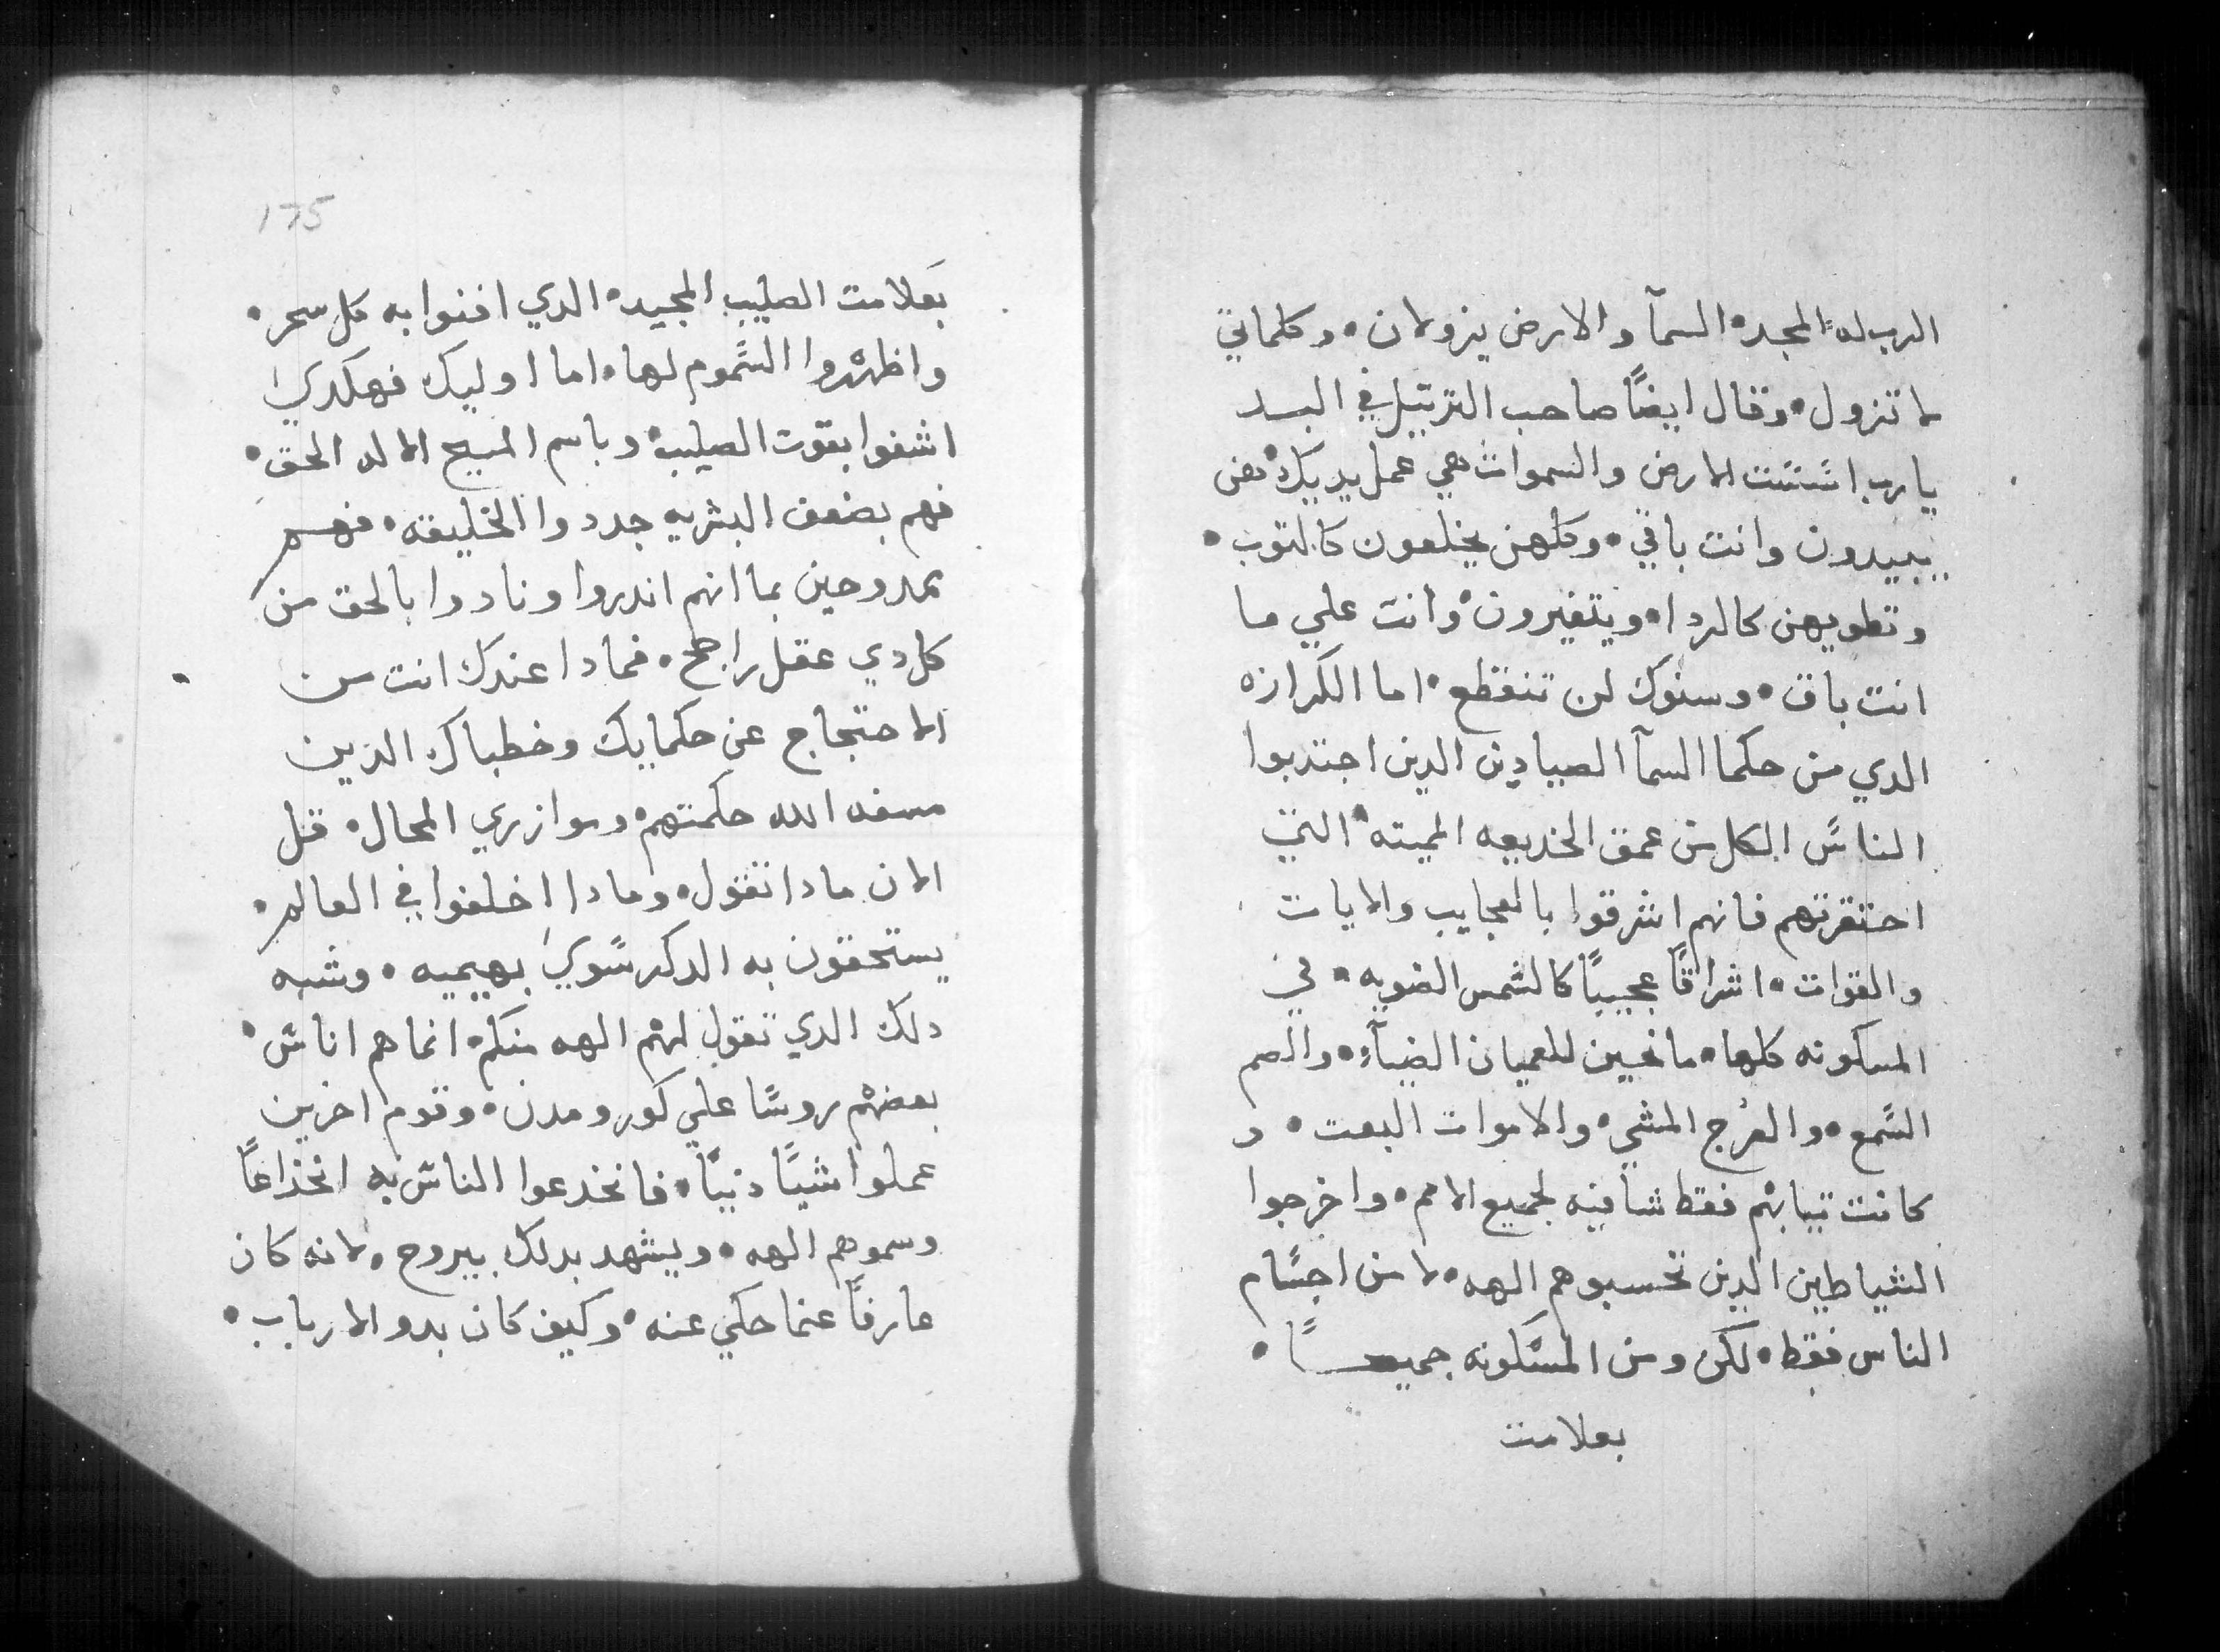 الرب له المجد • السمآ والارض يزولان • وكلماتي
لا تزول • وقال ايضًا صاحب الترتيل في البـد
يارب اسَّسَت الارض والسموات هي عمل يديك • هن
يبيدون وانت باقي • وكلهن يخلعون كالتوب •
وتطويهن كالردا • ويتغيرون • وانت علي ما
انت باق • وسنوك لن تنقطع • اما الكرازه
الدي من حكما السمآ الصيادين الدين اجتدبوا
الناسَ الكل من عمق الخديعه المميته • التي
احتقرتهم فانهم اشرقوا بالعجايب والايات
والقوات • اشراقًا عجيبًا كالشمس الضويه • في
المسكونه كلها • مانحين للعميان الضيآء • والصم
السَّمع • والعُرج المشي • والاموات البعت • و
كانت تيابهم فقط شافيه لجميع الامم • واخرجوا
الشياطين الدين تحسبوهم الهه • لا من اجسَام
الناس فقط • لكن ومن المسَكونه جميعـًا •
بعلامت
175
بعَلامت الصليب المجيد • الدي افنوا به كل سحر •
واظهَروا السَّموم لها • اما اوليك فهكدي
اشفوا بقوت الصليب • وباسم المسيح الاله الحق •
فهم بضعف البشريه جددوا الخليقه • فهم
ممدوحين بما انهم اندروا ونادوا بالحق من
كل دي عقل راجح • فمادا عندك انت من
الاحتجاج عن حكمايك وخطباك الدين
سفه الله حكمتهم • وموازري المحال • قل
الان مادا تقول • ومادا اخلفوا في العالم •
يستحقون به الدكر سَوي بهيميه • وشبه
دلك الدي تقول لهم الهه منكم • انما هم اناسَ •
بعضهم روسًا علي كور ومدن • وقوم اخرين
عملوا شيًا دنيًا • فانخدعوا الناسَ به انخداعًا
وسموهم الهه • ويشهد بدلك بيروح • لانه كان
عارفًا عنما حكي عنه • وكيف كان بدو الارباب •